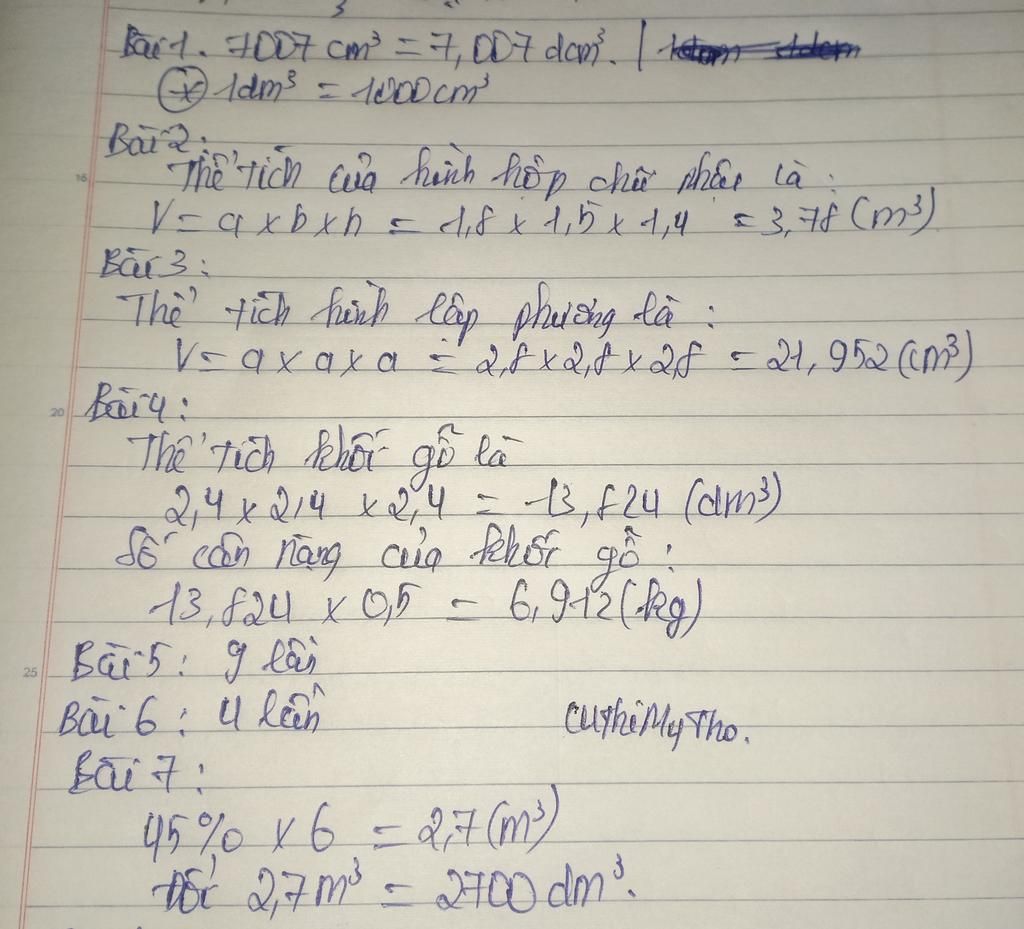 Bài 1. 7007 cm³ = 7,007 dcm³. |
* 1dm³ = 1000cm³
Bài 2:
Thể tích của hình hộp chữ nhật là:
V = a x b x h = 1,8 x 1,5 x 1,4 = 3,78 (m³)
Bài 3:
Thể tích hình lập phương là:
V = a x a x a = 2,8 x 2,8 x 2,8 = 21,952 (cm³)
Bài 4:
Thể tích khối gỗ là
2,4 x 2,4 x 2,4 = 13,824 (dm³)
Số cân nặng của khối gỗ:
13,824 x 0,5 = 6,912 (kg)
Bài 5: 9 lần
Bài 6: 4 lần
CuThiMyTho.
Bài 7:
45% x 6 = 2,7 (m³)
Đổi 2,7m³ = 2700 dm³.